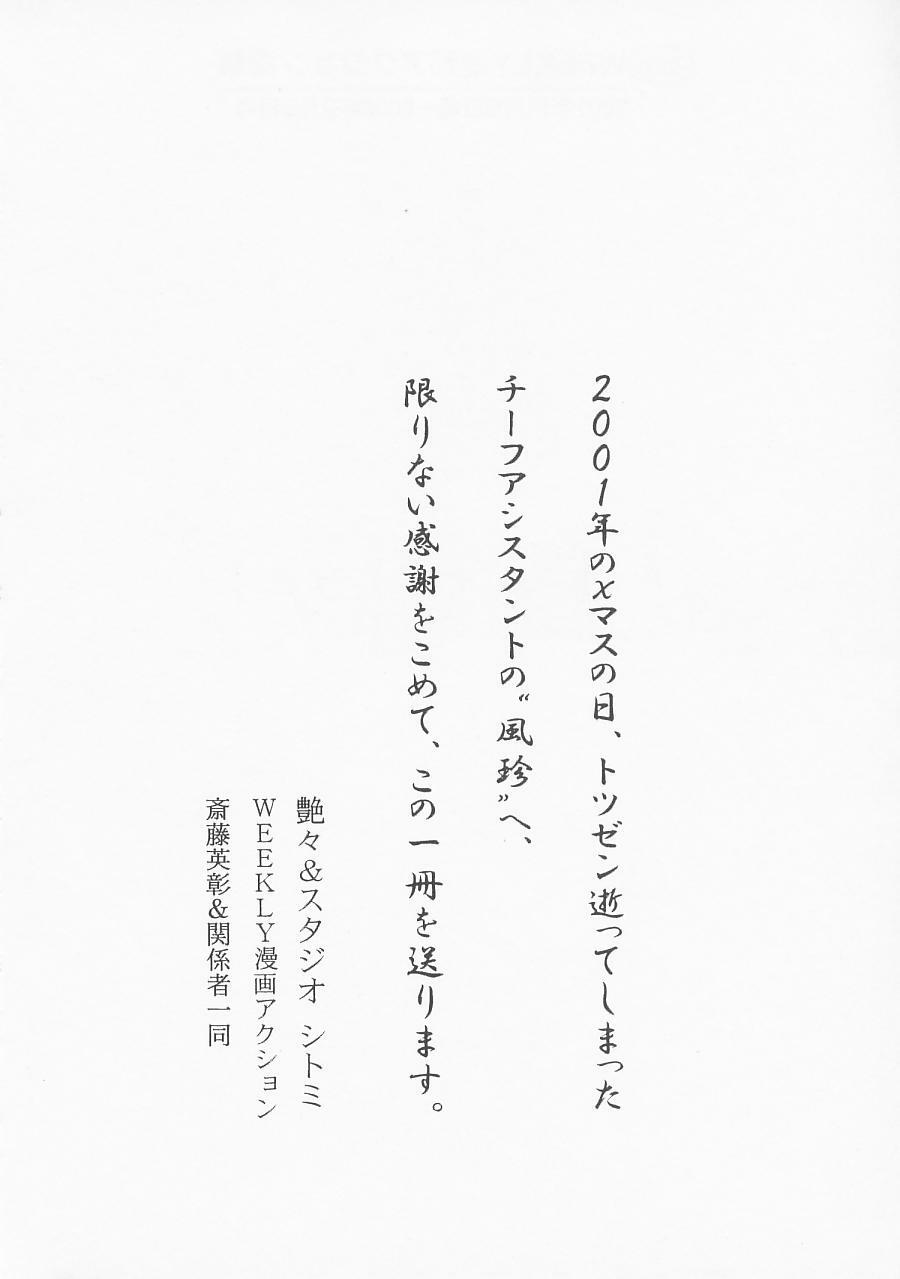 2001年のXマスの日、トツゼン逝ってしまった
チーフアシスタントの“風珍”へ、
限りない感謝をこめて、この一冊を送ります。
艶々&スタジオ シトミ
WEEKLY漫画アクション
斎藤英彰&関係者一同